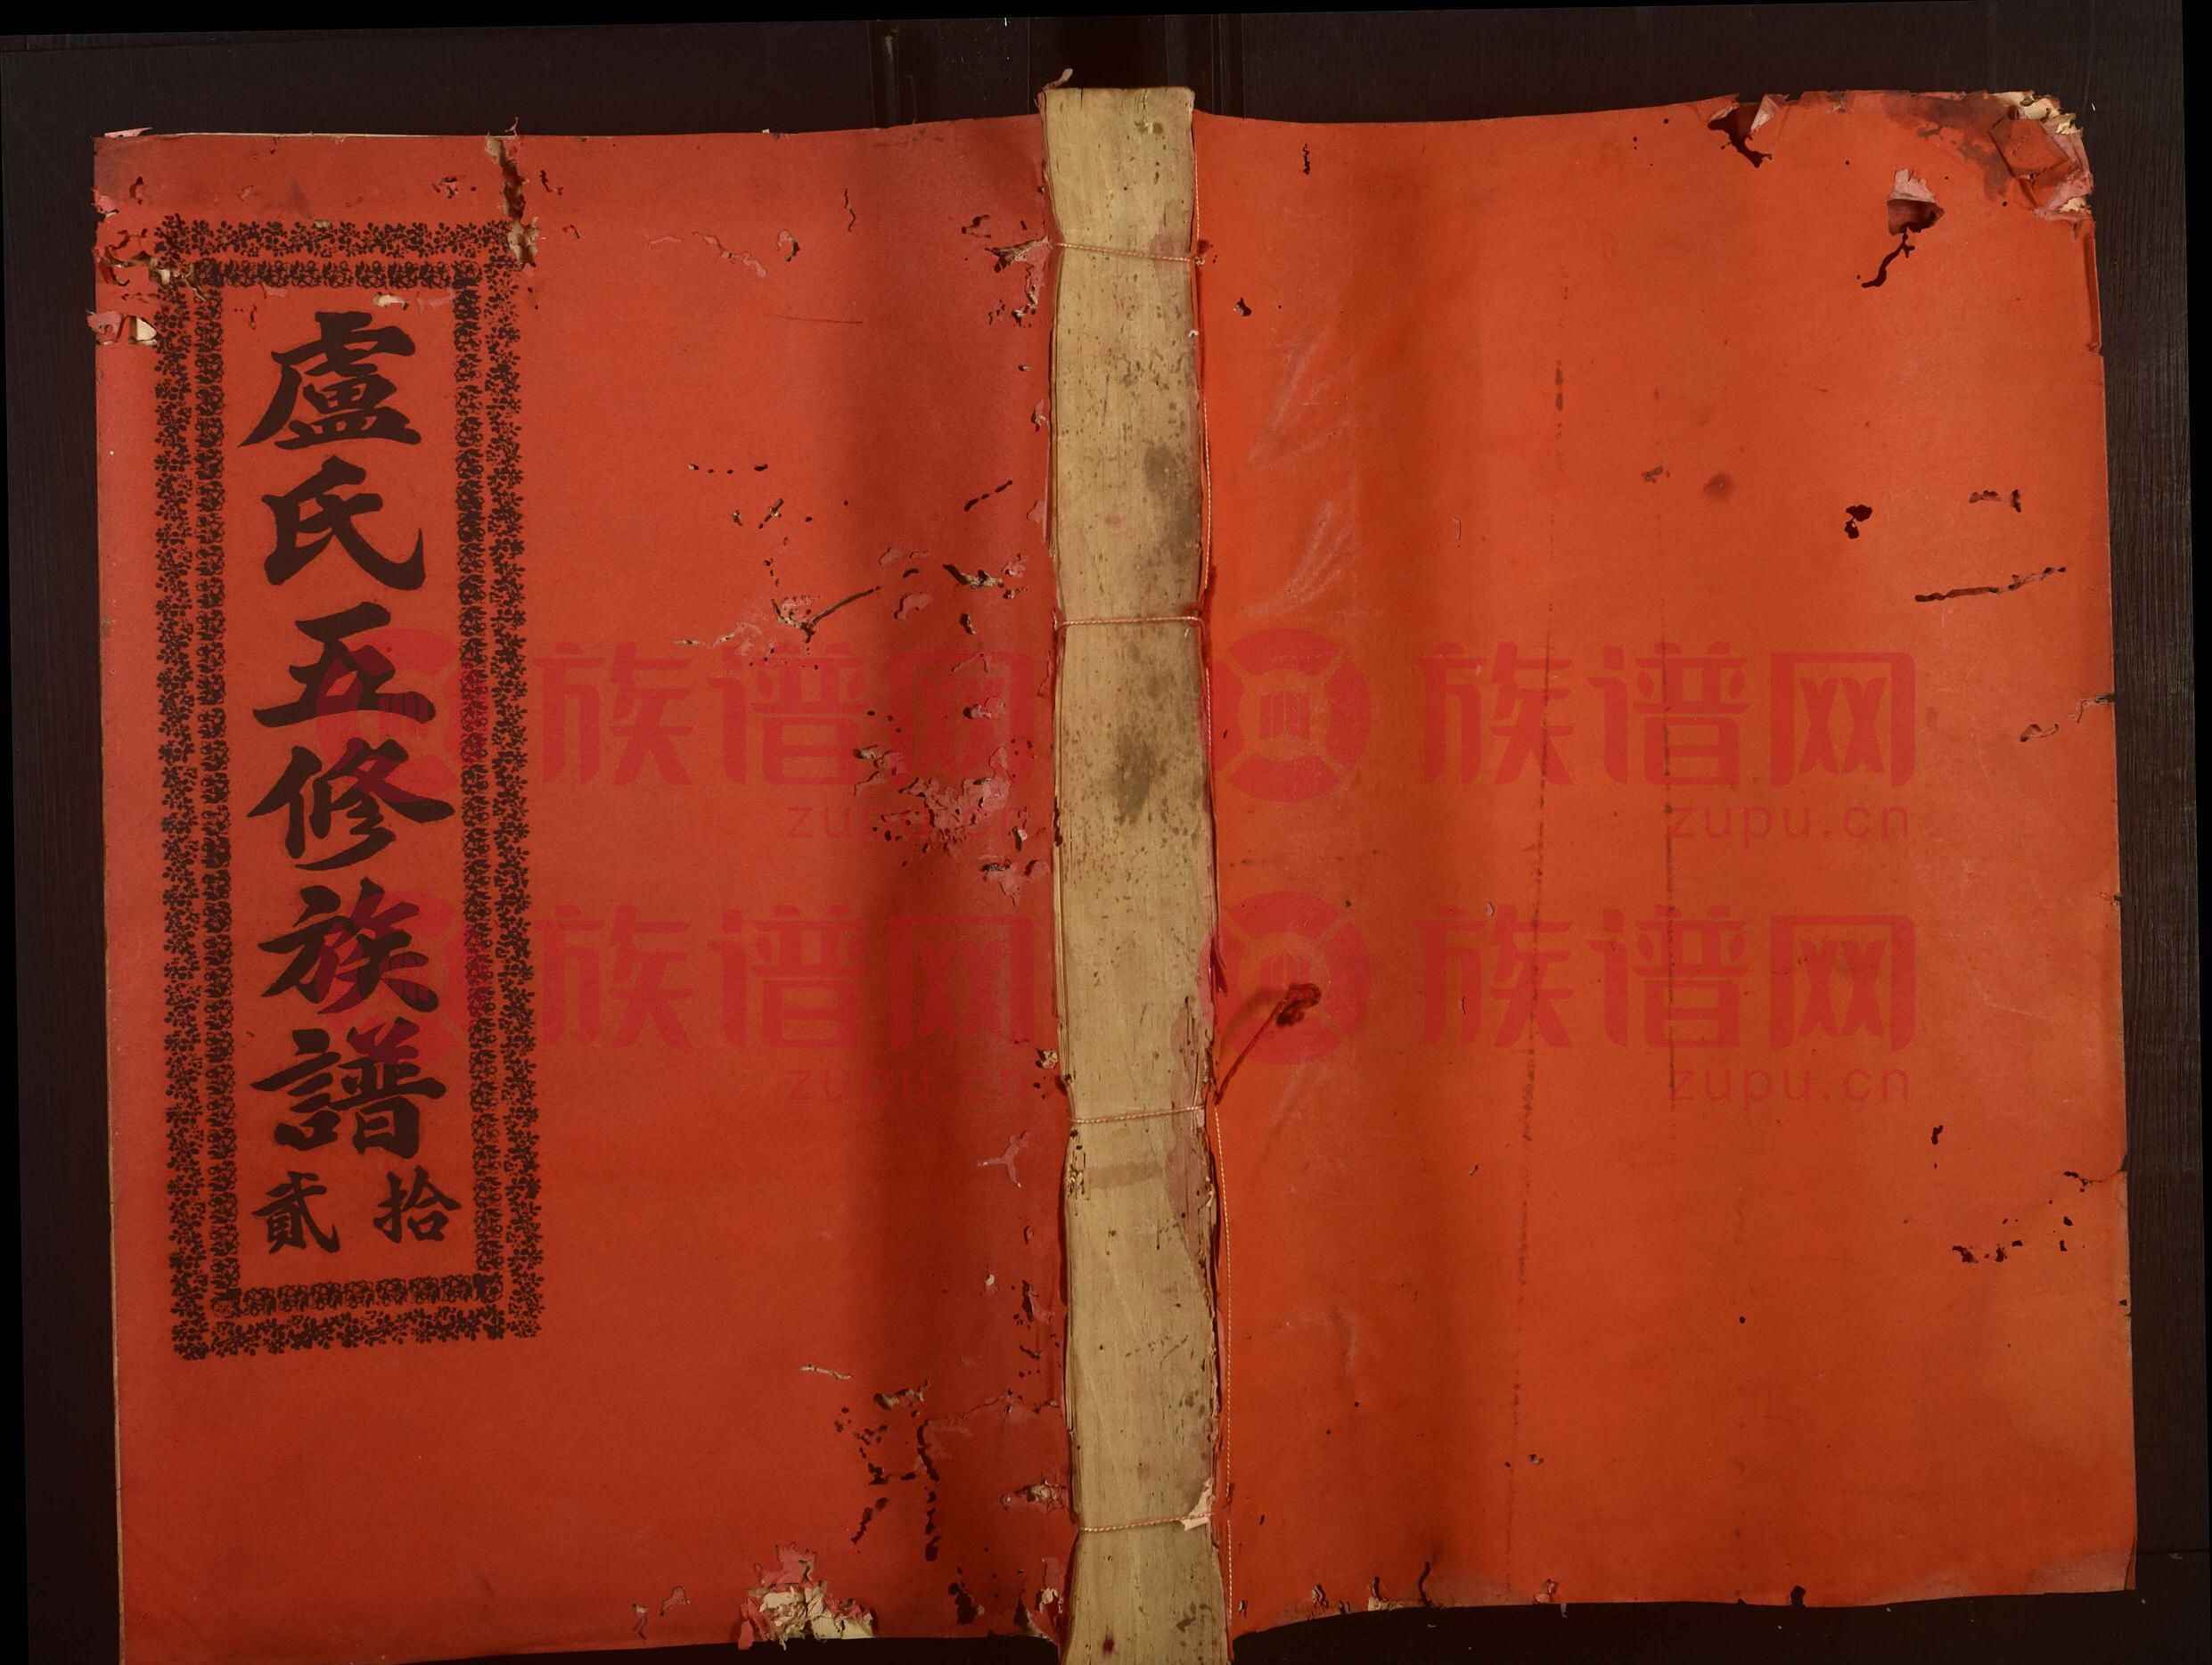 盧氏五修族譜
拾貳
族谱网 族谱网
zupu.cn zupu.cn
族谱网 族谱网
zupu.cn zupu.cn